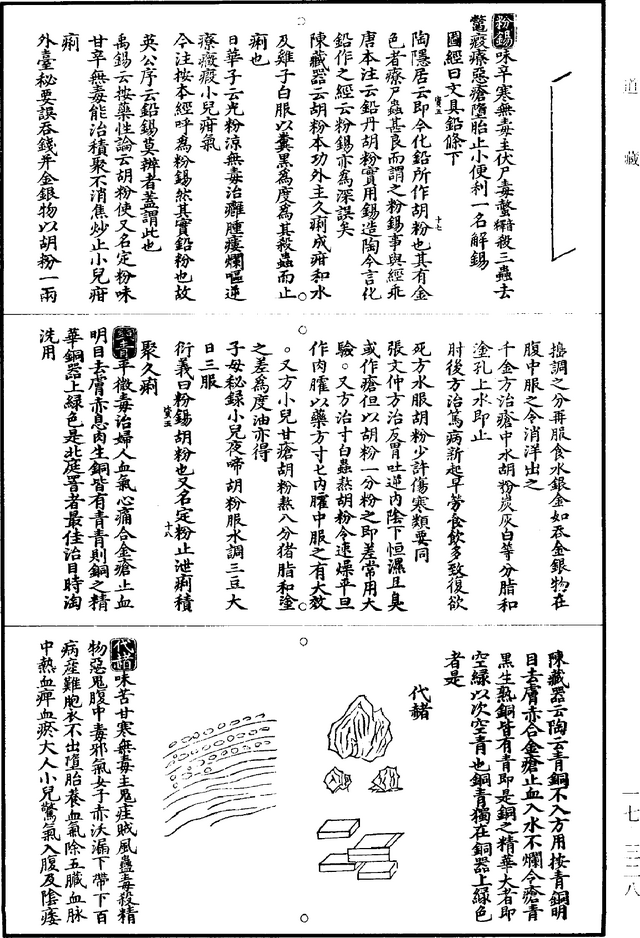 道藏
粉錫味辛寒無毒主伏尸毒螫殺三蟲去
鱉瘕療惡瘡墮胎止小便利一名解錫
圖經曰文具鉛條下
陶隱居云即今化鉛所作胡粉也其有金
色者療尸蟲甚良而謂之粉錫事與經乖
唐本注云鉛丹胡粉實用錫造陶今言化
鉛作之經云粉錫亦為深誤矣
陳藏器云胡粉本功外主久痢成疳和水
及雞子白服以糞黑為度為其殺蟲而止
痢也
日華子云光粉涼無毒治癰腫瘻爛嘔逆
療癥瘕小兒疳氣
今注按本經呼為粉錫然其實鉛粉也故
英公序云鉛錫莫辨者蓋謂此也
禹錫云按藥性論云胡粉使又名定粉味
甘辛無毒能治積聚不消焦炒止小兒疳
痢
外臺秘要誤吞錢并金銀物以胡粉一兩
搗調之分再服食水銀金如吞金銀物在
腹中服之令消洋出之
千金方治瘡中水胡粉炭灰白等分脂和
塗孔上水即止
肘後方治篤病新起早勞食飲多致復欲
死方水服胡粉少許傷寒類要同
張文仲方治反胃吐逆內陰下恒濕且臭
或作瘡但以胡粉一分粉之即差常用大
驗。又方治寸白蟲熬胡粉令速燥平旦
作肉臛以藥方寸匕內臛中服之有大效
。又方小兒甘瘡胡粉熬八分猪脂和塗
之差為度油亦得
子母秘錄小兒夜啼胡粉服水調三豆大
日三服
衍義曰粉錫胡粉也又名定粉止泄痢積
聚久痢
銅青平微毒治婦人血氣心痛合金瘡止血
明目去膚赤息肉生銅皆有青青則銅之精
華銅器上綠色是北庭署者最佳治目時淘
洗用
陳藏器云陶云青銅不入方用按青銅明
目去膚赤合金瘡止血入水不爛令瘡青
黑生熟銅皆有青即是銅之精華大者即
空綠以次空青也銅青獨在銅器上綠色
者是
代赭
代赭味苦甘寒無毒主鬼疰賊風蠱毒殺精
物惡鬼腹中毒邪氣女子赤沃漏下帶下百
病產難胞衣不出墮胎養血氣除五臟血脉
中熱血痺血瘀大人小兒驚氣入腹及陰痿
一七 三二八